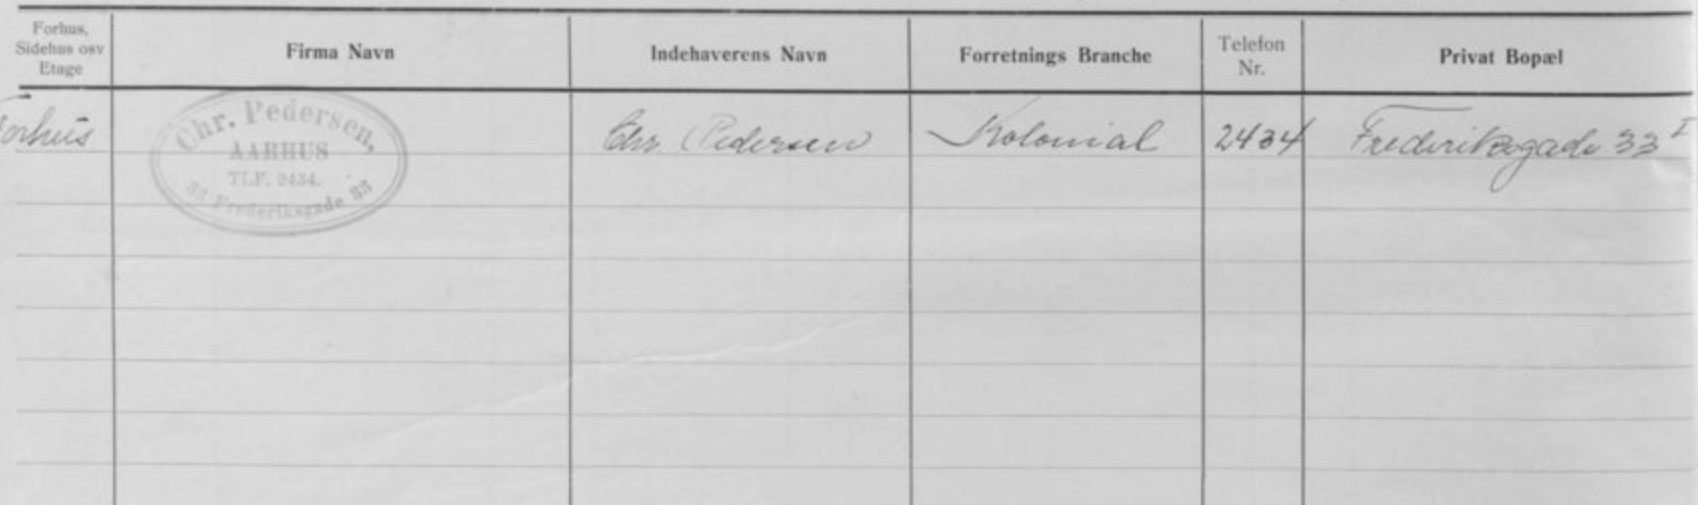 Forhus,
Sidehus osv
Etage
Firma Navn
Indehaverens Navn
Forretnings Branche
Telefon
Nr.
Privat Bopæl
Forhus
Chr. Pedersen,
AARHUS
TLF. 2434.
33 Frederiksgade 33
Chr Pedersen
Kolonial
2434
Frederiksgade 33 I